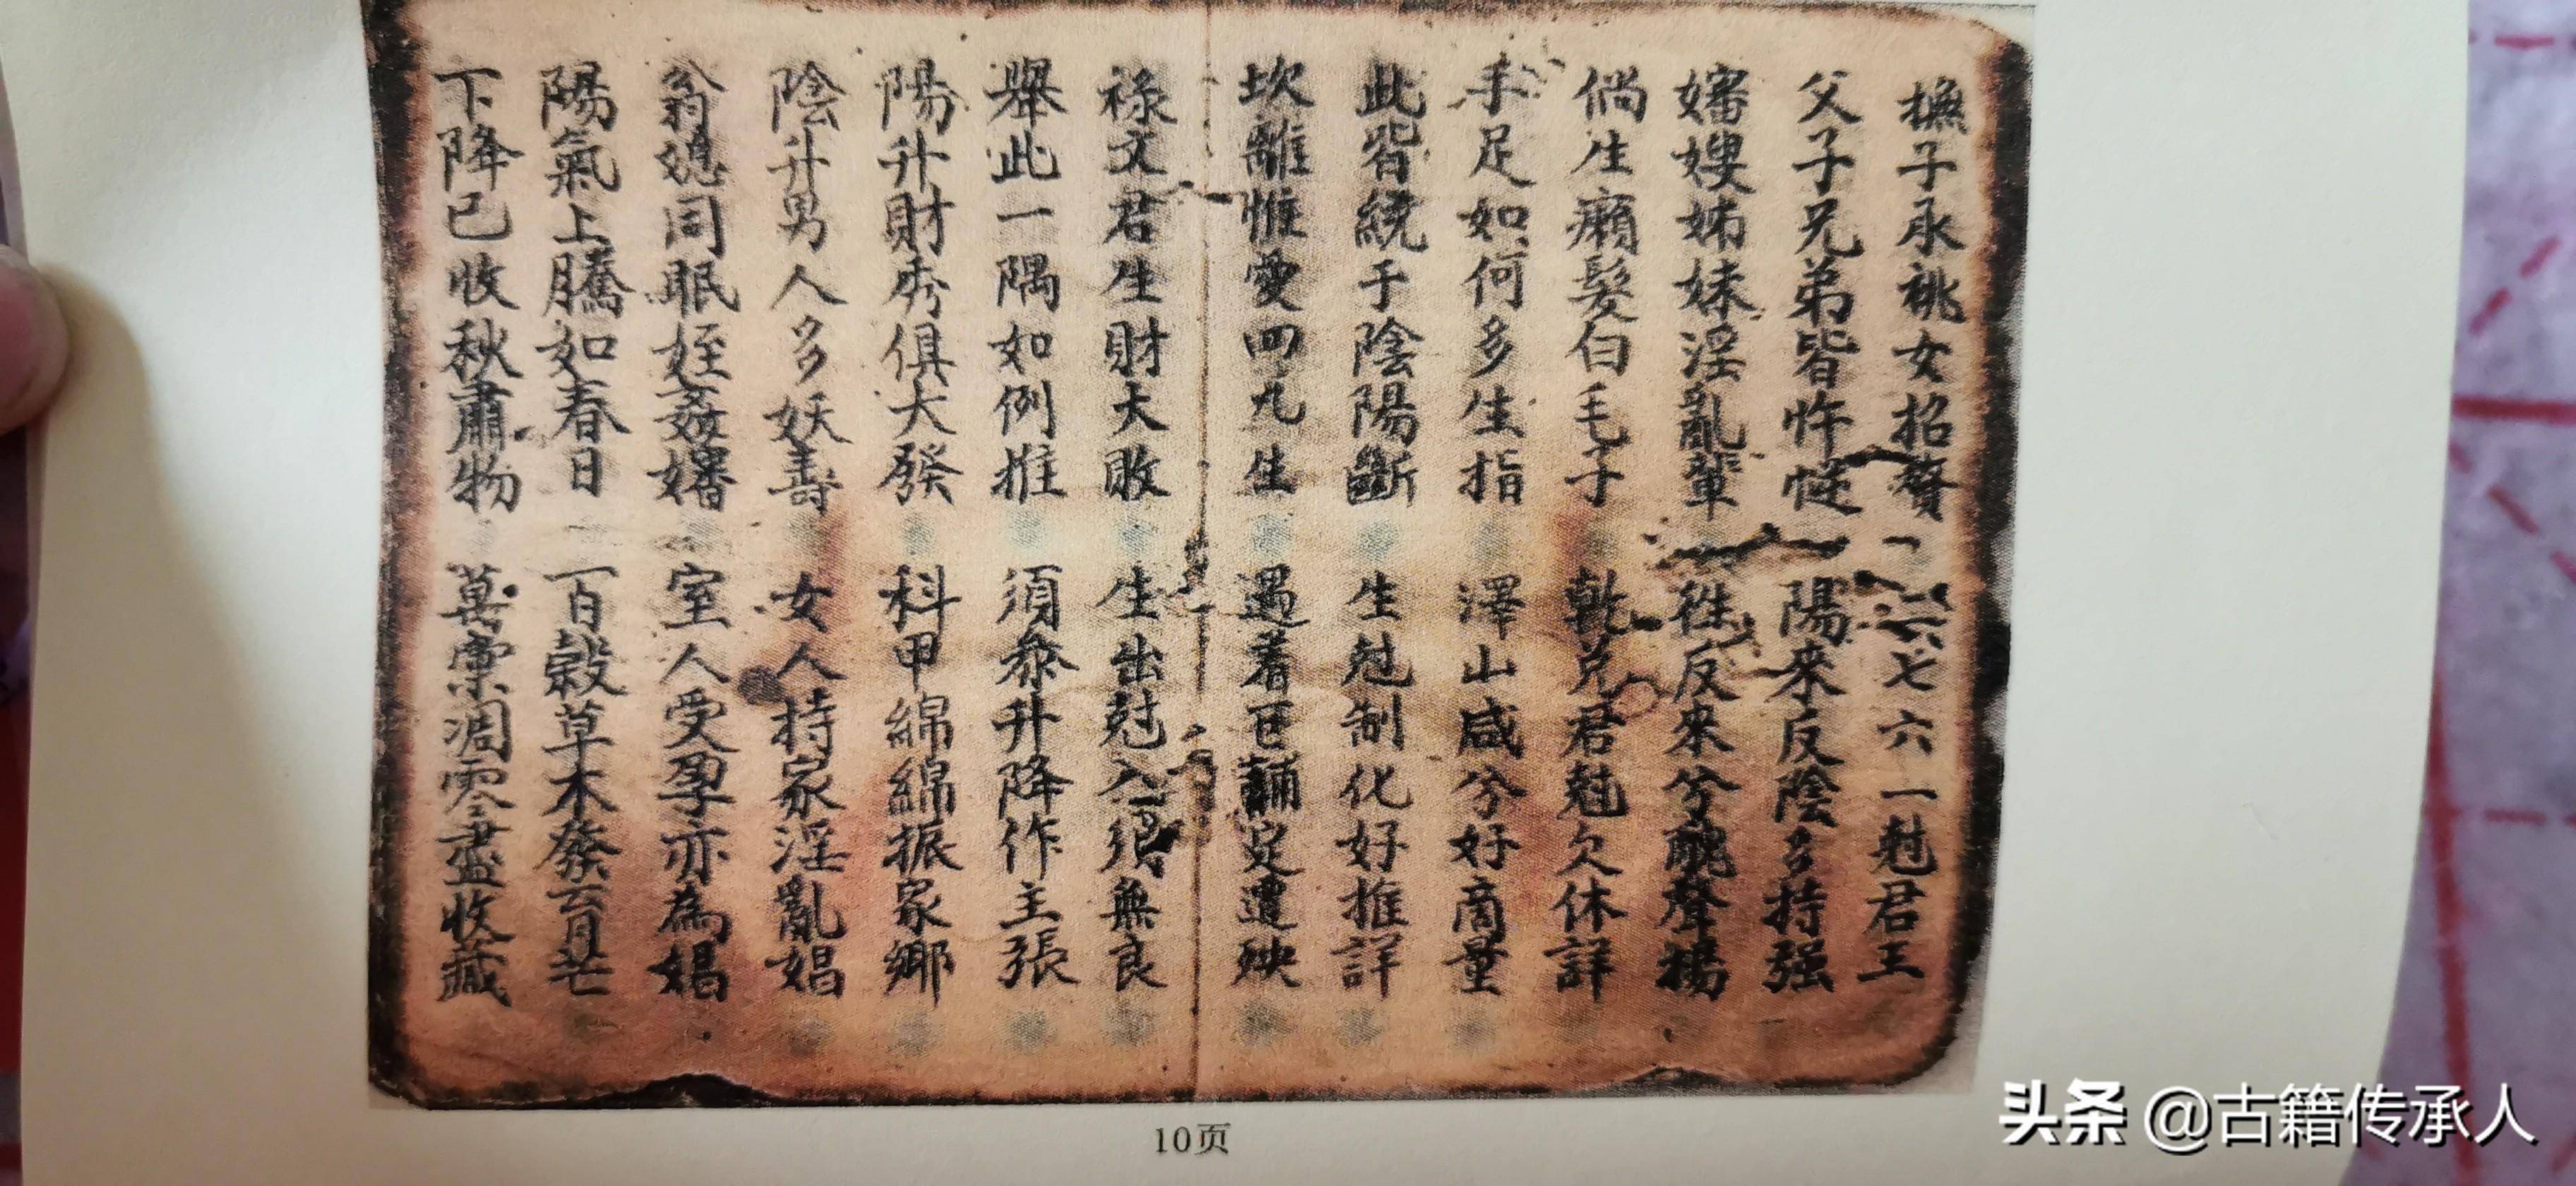 撫子承祧女招贅 六七六一尅君王
父子兄弟皆忤逆 陽來反陰多持强
嬸嫂姊妹淫亂輩 徃反來兮醜聲揚
倘生癩髮白毛子 乾兑君尅欠休詳
手足如何多生指 澤山咸兮好商量
此皆統于陰陽斷 生尅制化好推詳
坎離惟愛四九生 遇着巨輔定遭殃
祿文君生財大敗 生出尅入須無良
舉此一隅如例推 須叅升降作主張
陽升財秀俱大發 科甲綿綿振家鄉
陰升男人多妖壽 女人持家淫亂娼
翁媳同眠姪姦嬸 室人受孕亦為娼
陽氣上騰如春日 百穀草木發青芒
下降已收秋肅物 萬彙凋零盡收藏
10页
头条 @古籍传承人